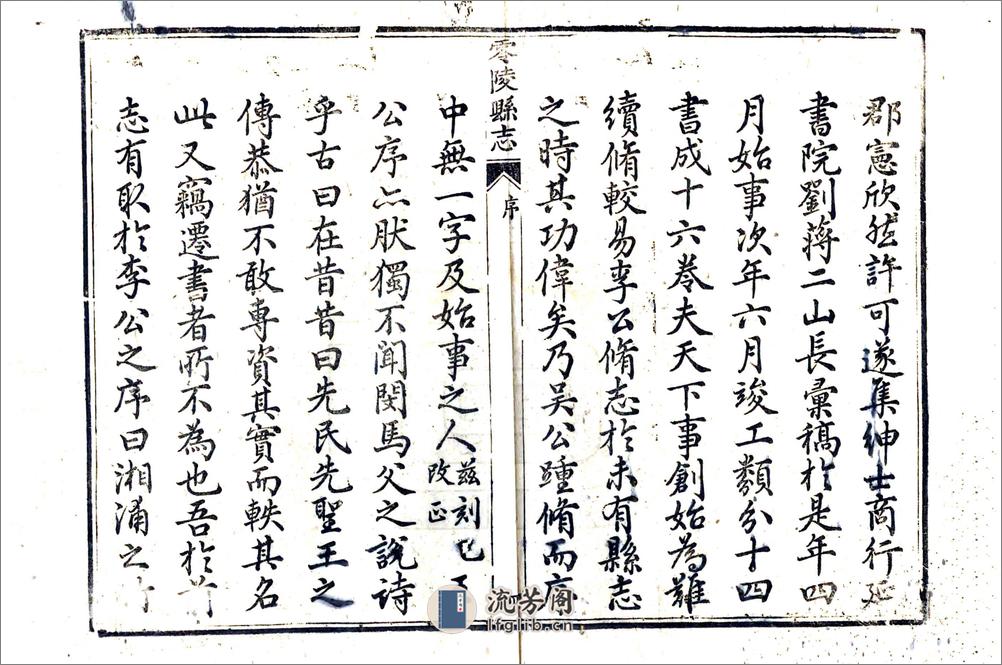 郡憲欣然許可遂集紳士商行延
書院劉蔣二山長彙稿於是年四
月始事次年六月竣工類分十四
書成十六卷夫天下事創始為難
續脩較易李公脩志於未有縣志
之時其功偉矣乃吳公踵脩而序
零陵縣志
序
中無一字及始事之人
茲刻已
改正
公序亦肰獨不聞閔馬父之說詩
乎古曰在昔昔曰先民先聖王之
傳恭猶不敢專資其實而軼其名
此又竊遷書者所不為也吾於
志有取於李公之序曰湘浦之
流芳阁
lfglib.cn